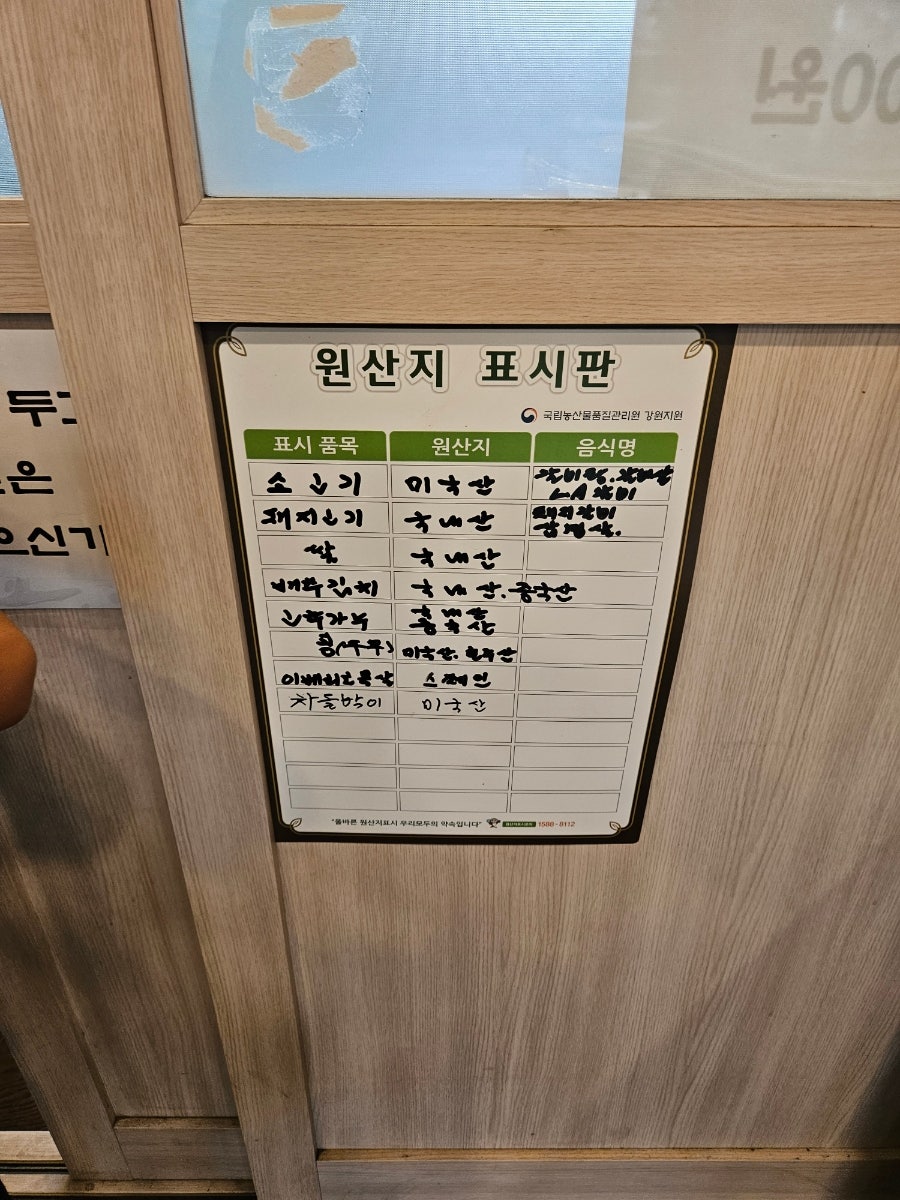 00원
두고
은
으신기
원산지 표시판
국립농산물품질관리원 강원지원
표시 품목 원산지 음식명
소고기 미국산 갈비탕.갈비살
LA갈비
돼지고기 국내산 돼지갈비
삼겹살.
쌀 국내산
배추김치 국내산.중국산
고추가루 국내산
중국산
콩(두부) 미국산.호주산
이베리코목살 스페인
차돌박이 미국산
"올바른 원산지표시 우리모두의 약속입니다" 1588-8112